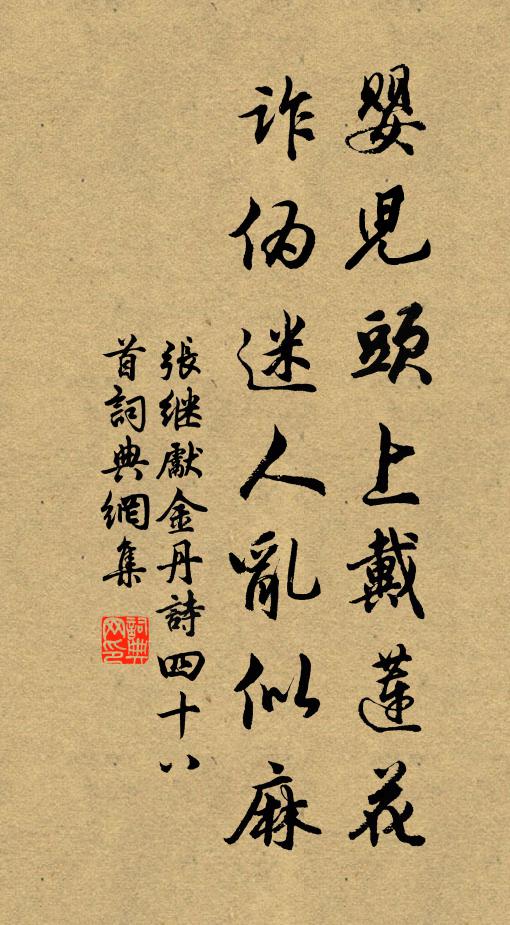 嬰児頭上戴蓮花
詐偽迷人亂似麻
張继獻金丹詩四十八
首詞典網集
詞典网印